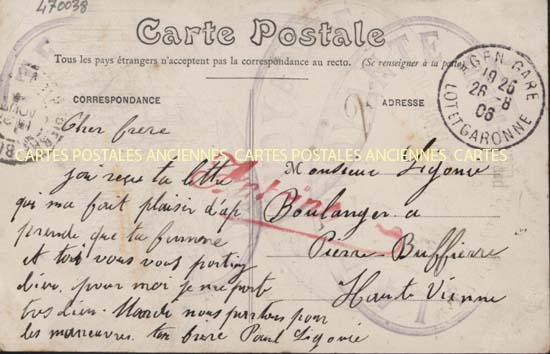 470038
Carte Postale
Tous les pays étrangers n'acceptent pas la correspondance au recto. (Se renseigner à la poste)
CORRESPONDANCE
ADRESSE
AGEN GARE
19 25
26 - 8
06
LOT ET GARONNE
CARTES POSTALES ANCIENNES CARTES POSTALES ANCIENNES CARTES
Cher frere
jai reçu ta lettre
qui ma fait plaisir d'ap
prendre que ta femme
et toi vous vous portiez
bien. pour moi je me porte
tres bien. Mardi nous partons pour
les maneuvres. ton frere Paul Ligonie
Monsieur Ligonie
Boulanger a
Pierre Buffierre
Haute Vienne